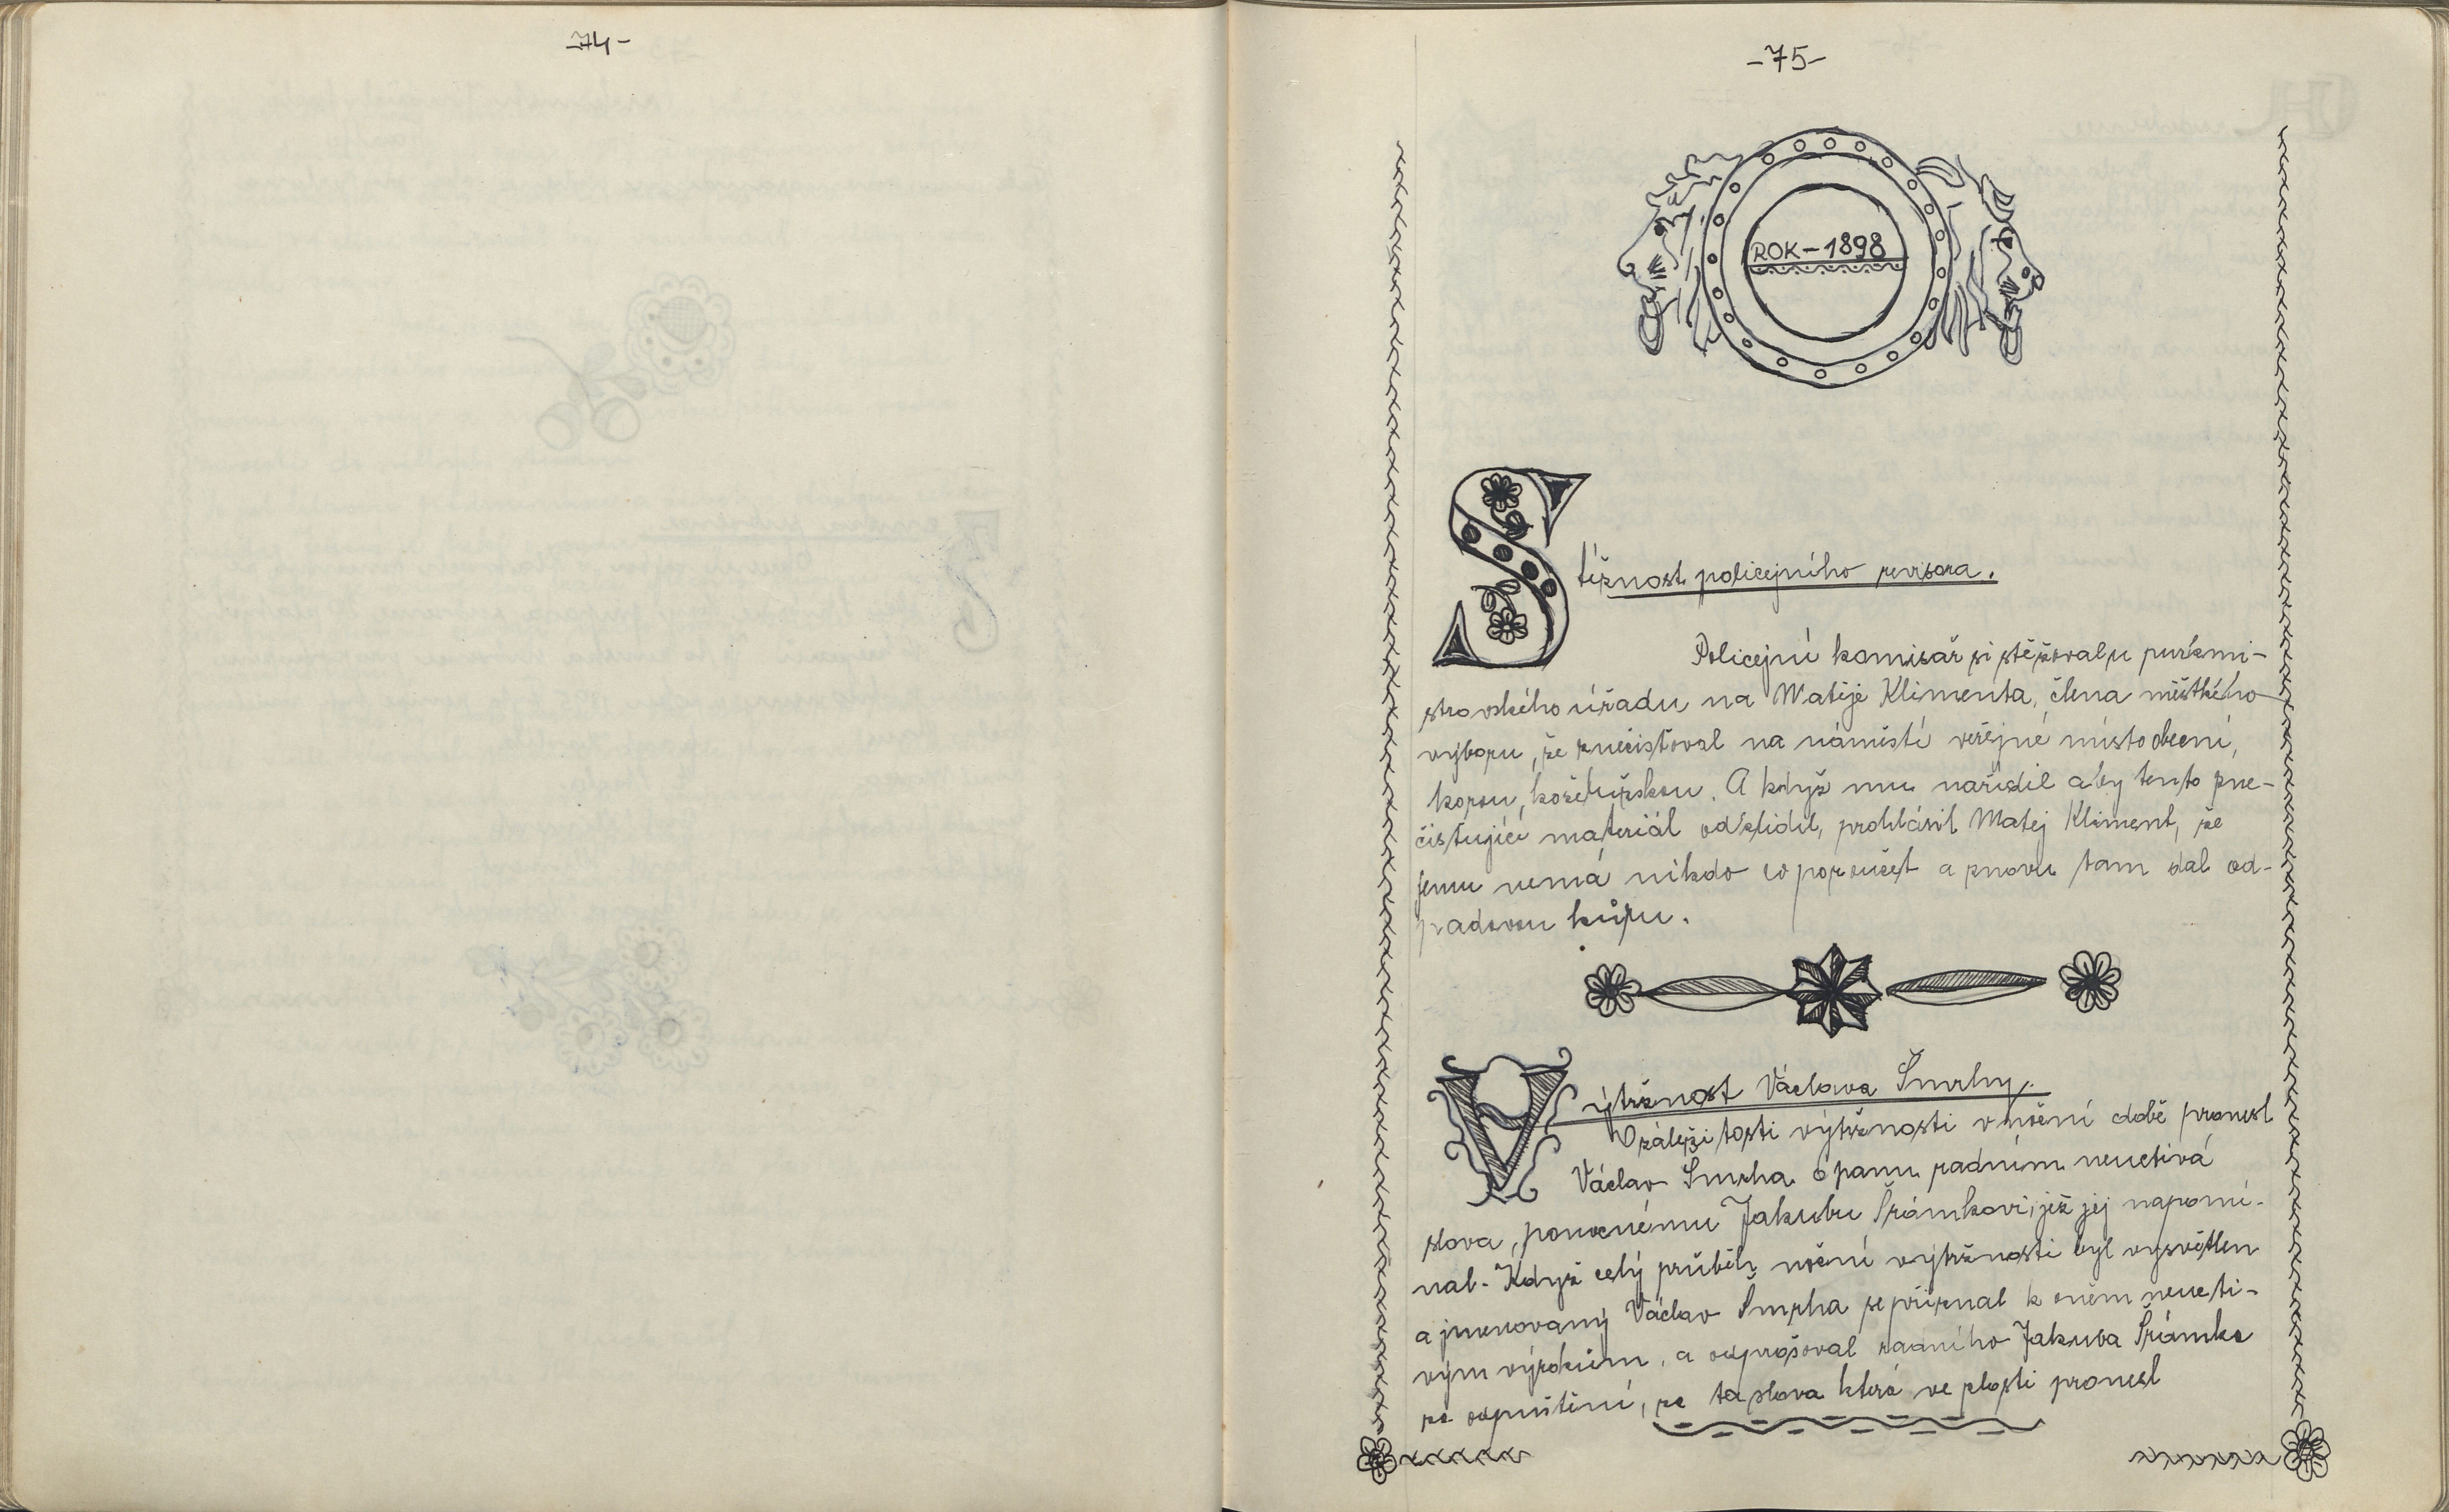 -74-
-75-
ROK-1898
Stížnost policejního revisora.
Policejní komisař si stěžoval u purkmi-
strovského úřadu na Matěje Klimenta, člena městkého
výboru, že znečisťoval na náměstí veřejné místo obecní,
korou, koželužskou. A když mu nařídil aby tento zne-
čisťující materiál odklidil, prohlásil Matěj Kliment, že
jemu nemá nikdo co poroučet a znovu tam dal od-
padovou kůru.
Výtržnost Václava Šmrhy.
V záležitosti výtržnosti v noční době pronesl
Václav Šmrha o panu radním neuctivá
slova, ponocnému Jakubu Šrámkovi, jež jej napomí-
nal. Když celý průběh noční výtržnosti byl vysvětlen
a jmenovaný Václav Šmrha se přiznal k oněm neucti-
vým výrokům, a odprošoval radního Jakuba Šrámka
za odpuštění, že ta slova která ve zlosti pronesl